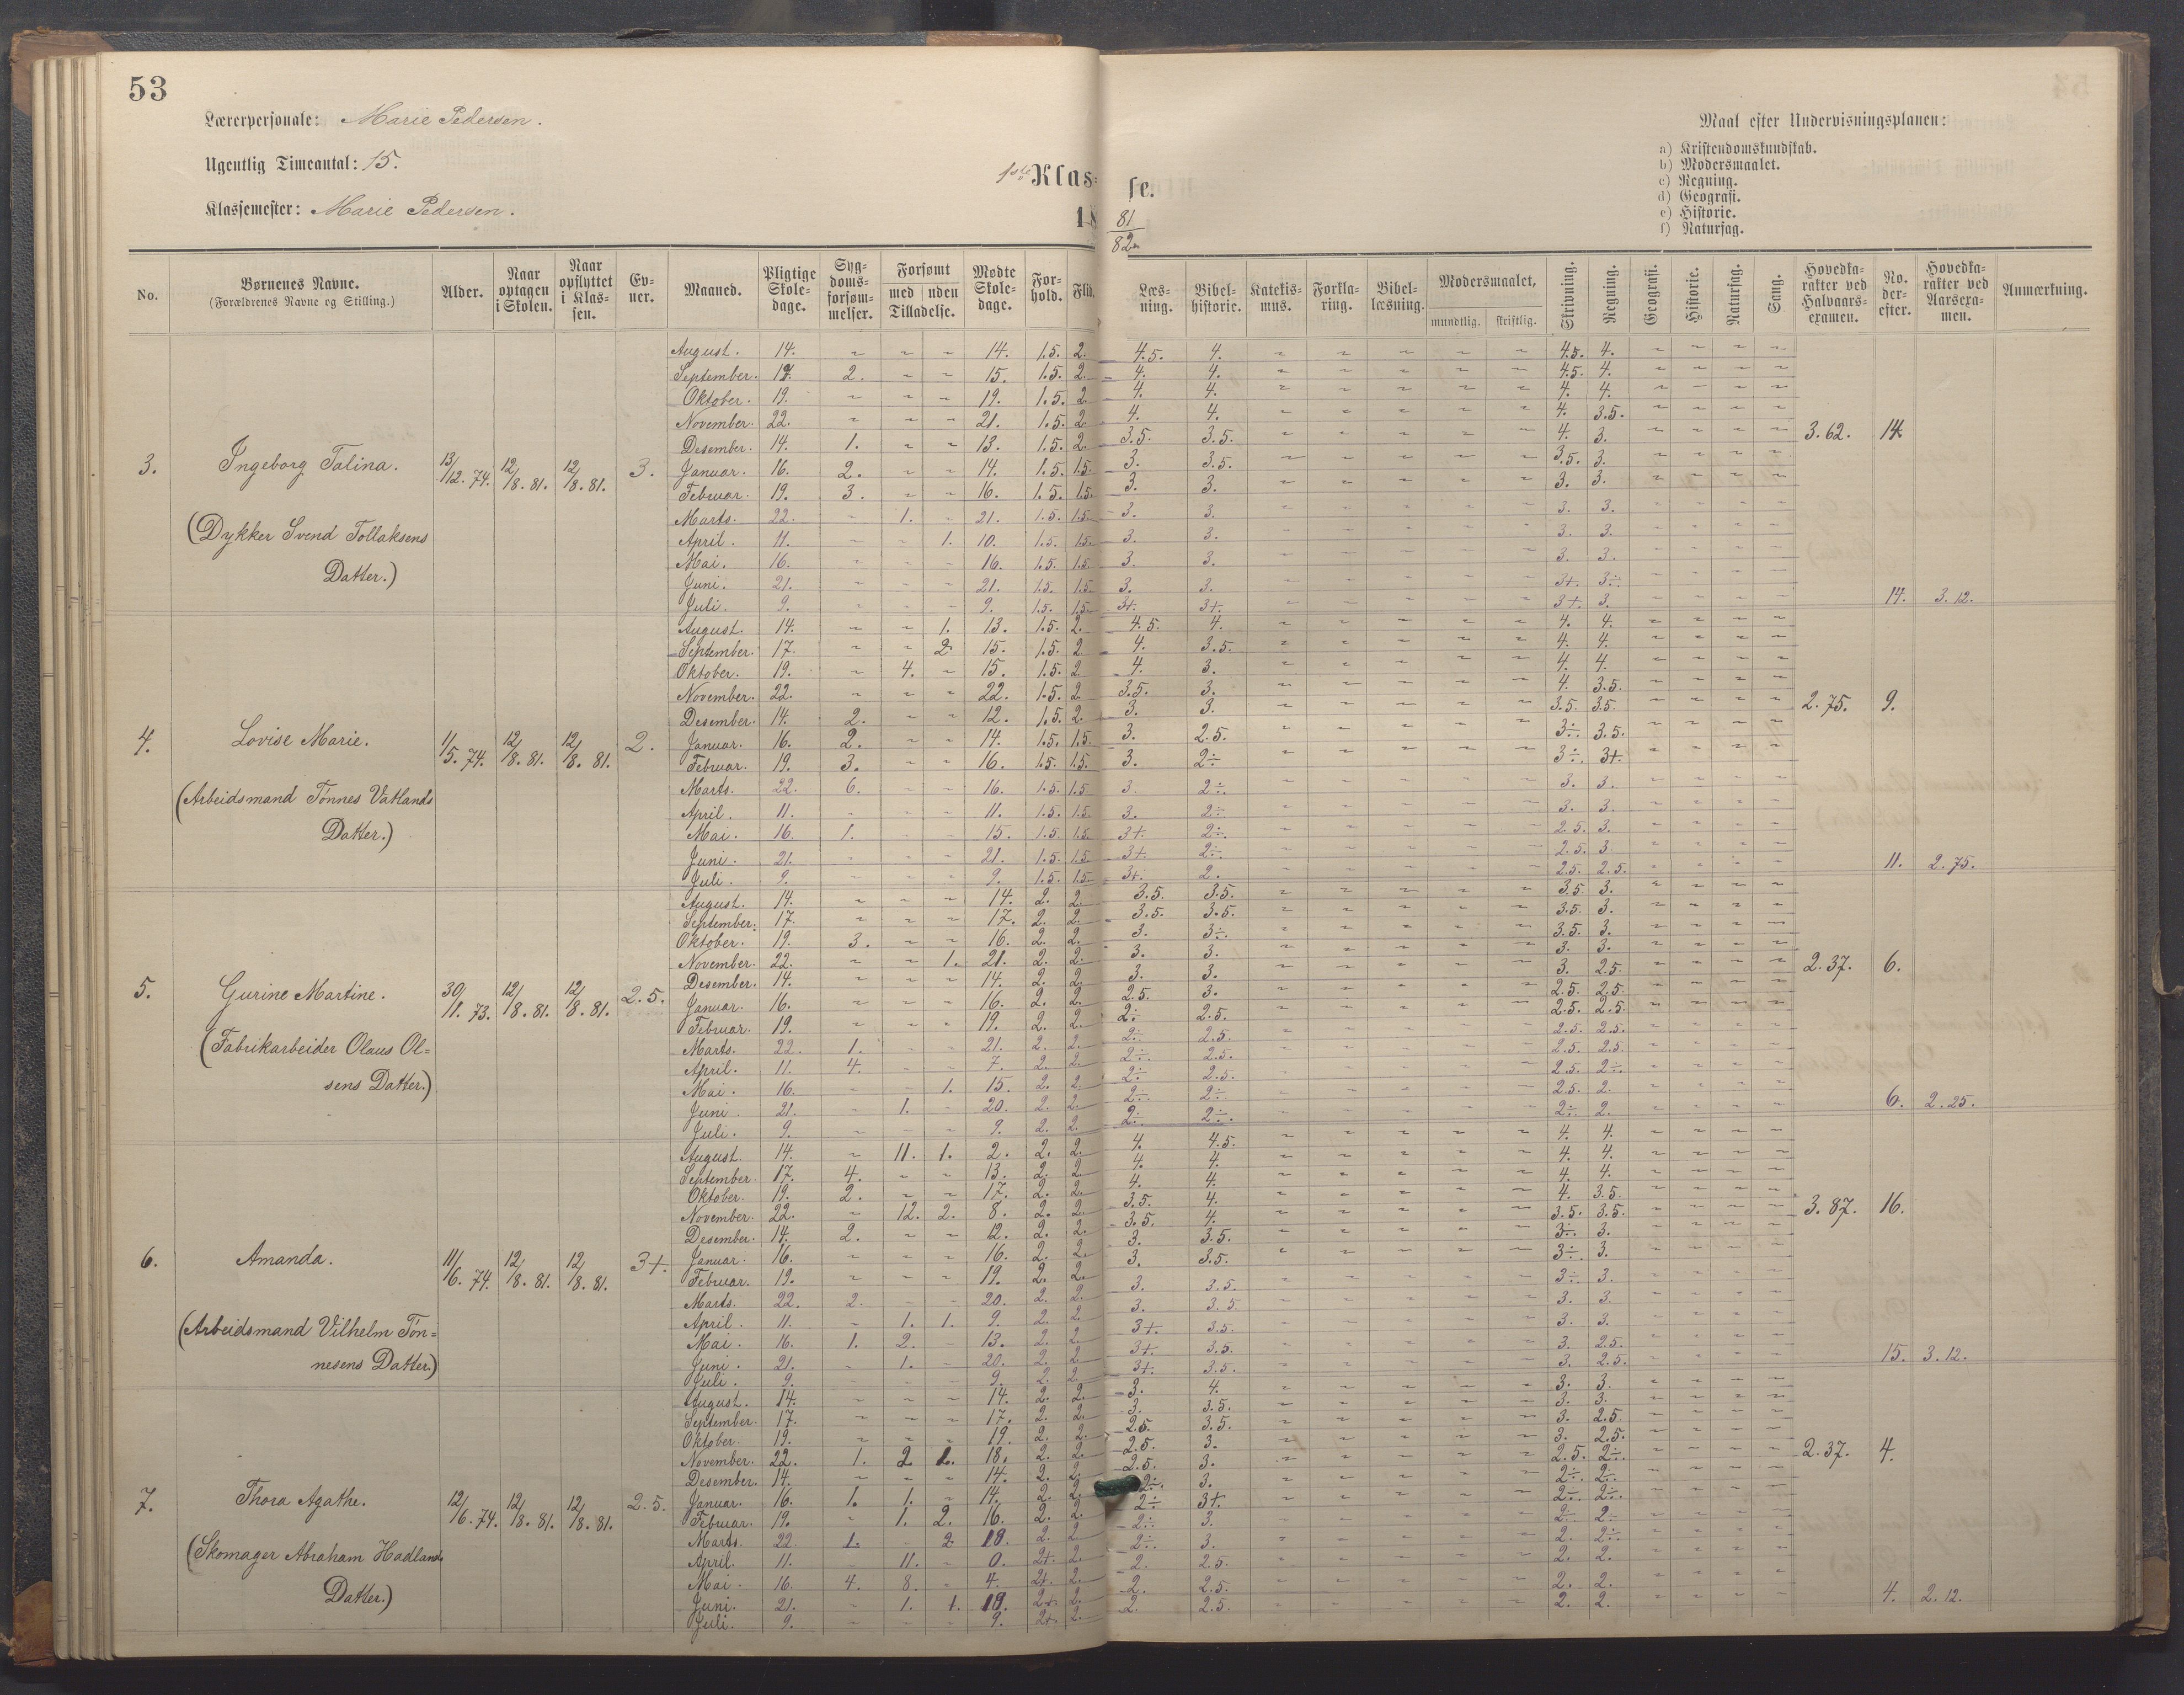 53
Lærerpersonale: Marie Pedersen.
Ugentlig Timeantal: 15.
Klassemester: Marie Pedersen.
1ste Klasse.
1881/82
Maal efter Undervisningsplanen:
a) Kristendomskundskab.
b) Modersmaalet.
c) Regning.
d) Geografi.
e) Historie.
f) Naturfag.
No. | Børnenes Navne. (Forældrenes Navne og Stilling.) | Alder. | Naar optagen i Skolen. | Naar opflyttet i Klassen. | Evner. | Maaned. | Pligtige Skoledage. | Sygdomsforsømmelser. | Forsømt med Tilladelse. | Forsømt uden Tilladelse. | Mødte Skoledage. | Forhold. | Flid. | Læsning. | Bibelhistorie. | Katekismus. | Forklaring. | Bibellæsning. | Modersmaalet, mundtlig. | skriftlig. | Skrivning. | Regning. | Geografi. | Historie. | Naturfag. | Sang. | Hovedkarakter ved Halvaarsexamen. | No. derefter. | Hovedkarakter ved Aarsexamen. | Anmærkning.
3. Ingeborg Talina. 13/12. 74. 12/8. 81. 12/8. 81. 3.
(Dykker Svend Tollaksens
Datter.)
August. 14. ~ ~ ~ 14. 1.5. 2. 4.5. 4. 4.5. 4.
September. 17. 2. ~ ~ 15. 1.5. 2. 4. 4. 4.5. 4.
Oktober. 19. ~ ~ ~ 19. 1.5. 2. 4. 4. 4. 4.
November. 22. ~ ~ ~ 21. 1.5. 2. 4. 4. 4. 3.5.
Desember. 14. 1. ~ ~ 13. 1.5. 2. 3.5. 3.5. 4. 3. 3.62. 14.
Januar. 16. 2. ~ ~ 14. 1.5. 1.5. 3. 3.5. 3.5. 3.
Februar. 19. 3. ~ ~ 16. 1.5. 1.5. 3. 3. 3. 3.
Marts. 22. ~ 1. ~ 21. 1.5. 1.5. 3. 3. 3. 3.
April. 11. ~ ~ 1. 10. 1.5. 1.5. 3. 3. 3. 3.
Mai. 16. ~ ~ ~ 16. 1.5. 1.5. 3. 3. 3. 3.
Juni. 21. ~ ~ ~ 21. 1.5. 1.5. 3. 3. 3+. 3÷.
Juli. 9. ~ ~ ~ 9. 1.5. 1.5. 3+. 3+. 3+. 3. 14. 3.12.
4. Lovise Marie. 11/5. 74. 12/8. 81. 12/8. 81. 2.
(Arbeidsmand Tønnes Vatlands
Datter.)
August. 14. ~ ~ 1. 13. 1.5. 2. 4.5. 4. 4. 4.
September. 17. ~ ~ 2. 15. 1.5. 2. 4. 3.5. 4. 4.
Oktober. 19. ~ 4. ~ 15. 1.5. 2. 4. 3. 4. 4.
November. 22. ~ ~ ~ 22. 1.5. 2. 3.5. 3. 4. 3.5.
Desember. 14. 2. ~ ~ 12. 1.5. 2. 3. 3. 3.5. 3.5. 2.75. 9.
Januar. 16. 2. ~ ~ 14. 1.5. 1.5. 3. 2.5. 3÷. 3.5.
Februar. 19. 3. ~ ~ 16. 1.5. 1.5. 3. 2÷. 3÷. 3+.
Marts. 22. 6. ~ ~ 16. 1.5. 1.5. 3. 2÷. 3. 3.
April. 11. ~ ~ ~ 11. 1.5. 1.5. 3. 2÷. 3. 3.
Mai. 16. 1. ~ ~ 15. 1.5. 1.5. 3+. 2÷. 2.5. 3.
Juni. 21. ~ ~ ~ 21. 1.5. 1.5. 3+. 2÷. 2.5. 3.
Juli. 9. ~ ~ ~ 9. 1.5. 1.5. 3+. 2. 2.5. 2.5. 11. 2.75.
5. Gurine Martine. 30/11. 73. 12/8. 81. 12/8. 81. 2.5.
(Fabrikarbeider Olaus Ol=
sens Datter.)
August. 14. ~ ~ ~ 14. 2. 2. 3.5. 3.5. 3.5. 3.
September. 17. ~ ~ ~ 17. 2. 2. 3.5. 3.5. 3.5. 3.
Oktober. 19. 3. ~ ~ 16. 2. 2. 3. 3÷. 3.5. 3.
November. 22. ~ ~ 1. 21. 2. 2. 3. 3. 3. 3.
Desember. 14. ~ ~ ~ 14. 2. 2. 3. 3. 3. 2.5. 2.37. 6.
Januar. 16. ~ ~ ~ 16. 2. 2. 2.5. 3. 2.5. 2.5.
Februar. 19. ~ ~ ~ 19. 2. 2. 2÷. 2.5. 2.5. 2.5.
Marts. 22. 1. ~ ~ 21. 2. 2. 2÷. 2.5. 2.5. 2.5.
April. 11. 4. ~ ~ 7. 2. 2. 2÷. 2.5. 2.5. 2.5.
Mai. 16. ~ ~ 1. 15. 2. 2. 2÷. 2.5. 2.5. 2÷.
Juni. 21. ~ 1. ~ 20. 2. 2. 2÷. 2÷. 2.5. 2.
Juli. 9. ~ ~ ~ 9. 2. 2. 2÷. 2÷. 2÷. 2. 6. 2.25.
6. Amanda. 11/6. 74. 12/8. 81. 12/8. 81. 3+.
(Arbeidsmand Vilhelm Tøn=
nesens Datter.)
August. 14. ~ 11. 1. 2. 2. 2. 4. 4.5. 4. 4.
September. 17. 4. ~ ~ 13. 2. 2. 4. 4. 4. 4.
Oktober. 19. 2. ~ ~ 17. 2. 2. 4. 4. 4. 4.
November. 22. ~ 12. 2. 8. 2. 2. 3.5. 4. 4. 3.5.
Desember. 14. 2. ~ ~ 12. 2. 2. 3.5. 4. 3.5. 3.5. 3.87. 16.
Januar. 16. ~ ~ ~ 16. 2. 2. 3. 3.5. 3÷. 3.
Februar. 19. ~ ~ ~ 19. 2. 2. 3. 3.5. 3÷. 3.
Marts. 22. 2. ~ ~ 20. 2. 2. 3. 3.5. 3÷. 3.
April. 11. ~ 1. 1. 9. 2. 2. 3. 3.5. 3. 3.
Mai. 16. 1. 2. ~ 13. 2. 2. 3+. 3.5. 3. 3.
Juni. 21. ~ 1. ~ 20. 2. 2. 3+. 3.5. 3. 2.5.
Juli. 9. ~ ~ ~ 9. 2. 2. 3+. 3.5. 3. 2.5. 15. 3.12.
7. Thora Agathe. 12/6. 74. 12/8. 81. 12/8. 81. 2.5.
(Skomager Abraham Hadlands
Datter.)
August. 14. ~ ~ ~ 14. 2. 2. 3. 4. 3. 3.
September. 17. ~ ~ ~ 17. 2. 2. 3. 3.5. 3. 3.
Oktober. 19. ~ ~ ~ 19. 2. 2. 2.5. 3.5. 3. 2.5.
November. 22. 1. 2 18. 2. 2. 2.5. 3. 3. 2.5.
Desember. 14. ~ ~ ~ 14. 2. 2. 2.5. 3. 2.5. 2÷. 2.37. 4.
Januar. 16. 1. 1. ~ 14. 2. 2. 2÷. 3. 2÷. 2÷.
Februar. 19. ~ 1. 2. 16. 2. 2. 2÷. 3+. 2÷. 2÷.
Marts. 22. 1. ~ 2. 2. 2. 2÷. 3. 2÷. 2÷.
April. 11. ~ 11. ~ 0. 2+. 2. 2÷. 3. 2. 2÷.
Mai. 16. 4. 8. ~ 4. 2+. 2. 2. 2.5. 2. 2.
Juni. 21. ~ 1. 1. 2+. 2. 2. 2.5. 2. 2.
Juli. 9. ~ ~ ~ 9. 2+. 2. 2. 2.5. 2. 2. 4. 2.12.